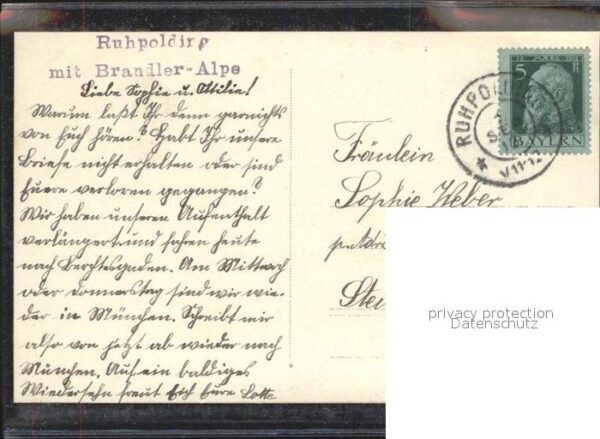 Ruhpolding
mit Brandler-Alpe
Liebe Sophie u. Ottilie!
Warum laßt Ihr denn garnichts
von Euch hören? Habt Ihr unsere
Briefe nicht erhalten oder sind
Euere verloren gegangen?
Wir haben unseren Aufenthalt
verlängert und fahren heute
nach Berchtesgaden. Am Mittwoch
oder Donnerstag sind wir wie-
der in München. Schreibt mir
also von jetzt ab wieder nach
München. Auf ein baldiges
Wiedersehn freut sich Eure Lotte
5 Pf
BAYERN
RUHPOLDING
Fräulein
Sophie Weber
Stei
privacy protection
Datenschutz